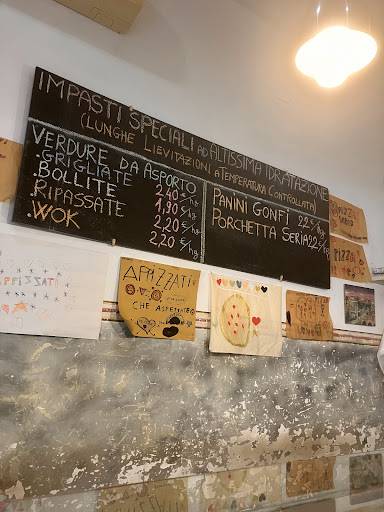 IMPASTI SPECIALI AD ALTISSIMA IDRATAZIONE
(LUNGHE LIEVITAZIONI A TEMPERATURA CONTROLLATA)
VERDURE DA ASPORTO
.GRIGLIATE 2,40 €/hg
.BOLLITE 1,90 €/hg
.RIPASSATE 2,20 €/hg
.WOK 2,20 €/hg
PANINI GONFI 22 €/kg
PORCHETTA SERIA 22 €/kg
APPIZZATI
CHE ASPETTATE